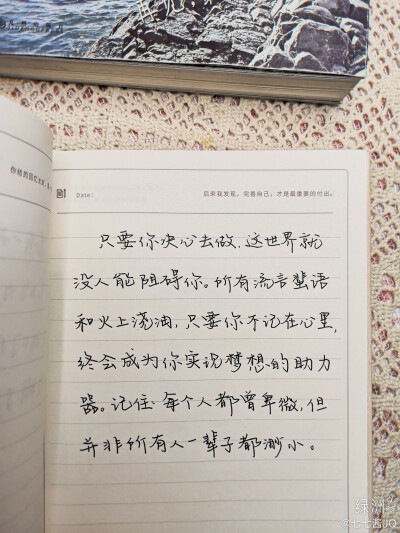 Date:
后来我发现，完善自己，才是最重要的付出。
只要你决心去做，这世界就
没人能阻碍你。所有流言蜚语
和火上浇油，只要你不记在心里，
终会成为你实现梦想的助力
器。记住每个人都曾卑微，但
并非所有人一辈子都渺小。
绿洲
@七七酱JQ